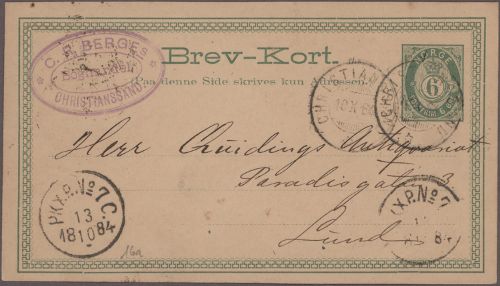 C. F. BERGES
CHRISTIANSSAND.
Brev-Kort.
(Paa denne Side skrives kun Adressen.)
NORGE
6
CHRISTIAN
10 X 8
Herr Quidings Antiqvariat
Paradisgatan 3.
Lund
PKXP. No 7 C.
13
18 10 84
XP. No 7
84
16a